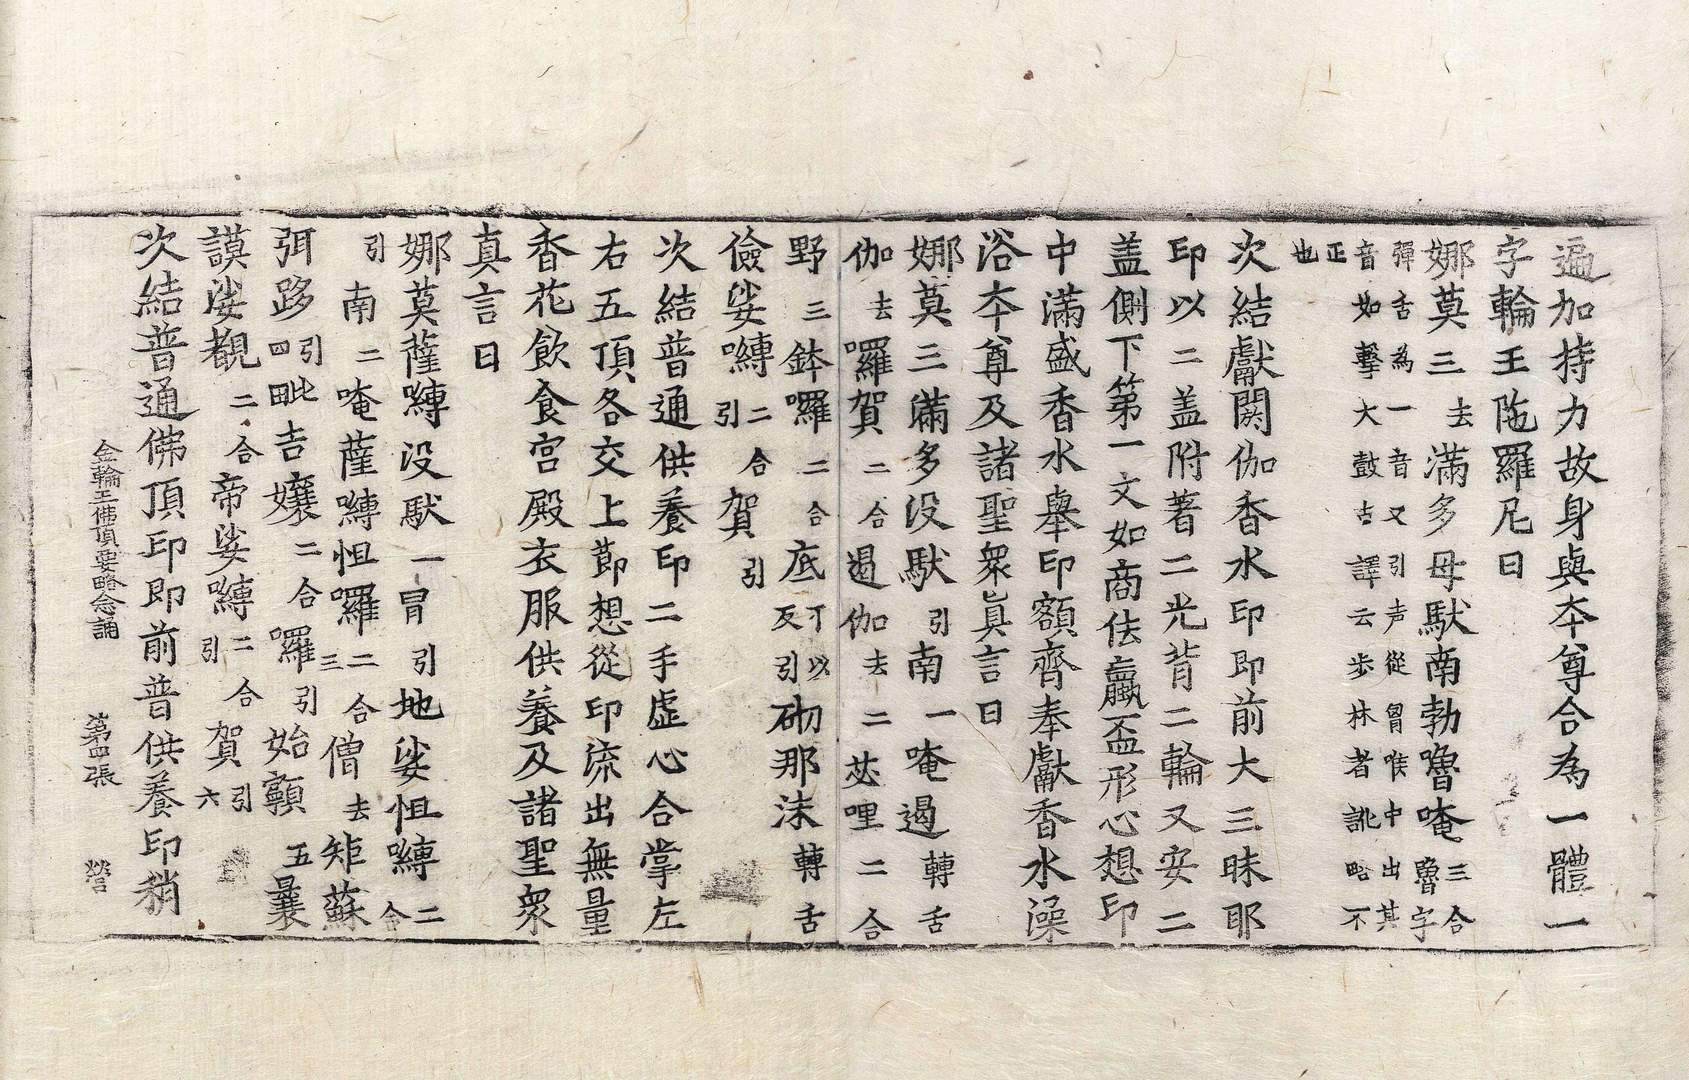 遍加持力故身與夲尊合為一體一
字輪王陁羅尼曰
娜莫三去滿多母馱南勃嚕唵三合嚕字
彈舌為一音又引声從胷喉中出其
音如擊大鼓古譯云步林者訛略不
正也
次結獻閼伽香水印即前大三昧耶
印以二盖附著二光背二輪又安二
盖側下第一文如商佉蠃盃形心想印
中滿盛香水舉印額齊奉獻香水澡
浴夲尊及諸聖衆真言曰
娜莫三滿多没馱引南一唵遏轉舌
伽去囉賀二合遏伽去二苾哩二合
野三鉢囉二合底丁以反引砌那沫轉舌
儉娑嚩二合引賀引
次結普通供養印二手虛心合掌左
右五頂各交上莭想從印流出無量
香花飲食宫殿衣服供養及諸聖衆
真言曰
娜莫薩嚩没馱一冐引地娑怛嚩二合
引南二唵薩嚩怛囉二合三僧去矩蘇
弭跢引四毗吉孃二合囉引始顐五曩
謨娑覩二合帝娑嚩二合引賀引六
次結普通佛頂印即前普供養印稍
金輪王佛頂要略念誦 第四張